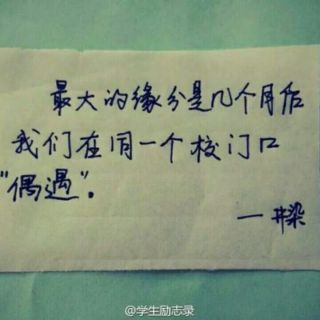 最大的缘分是几个月后
我们在同一个校门口
"偶遇"。
一井染
@学生励志录